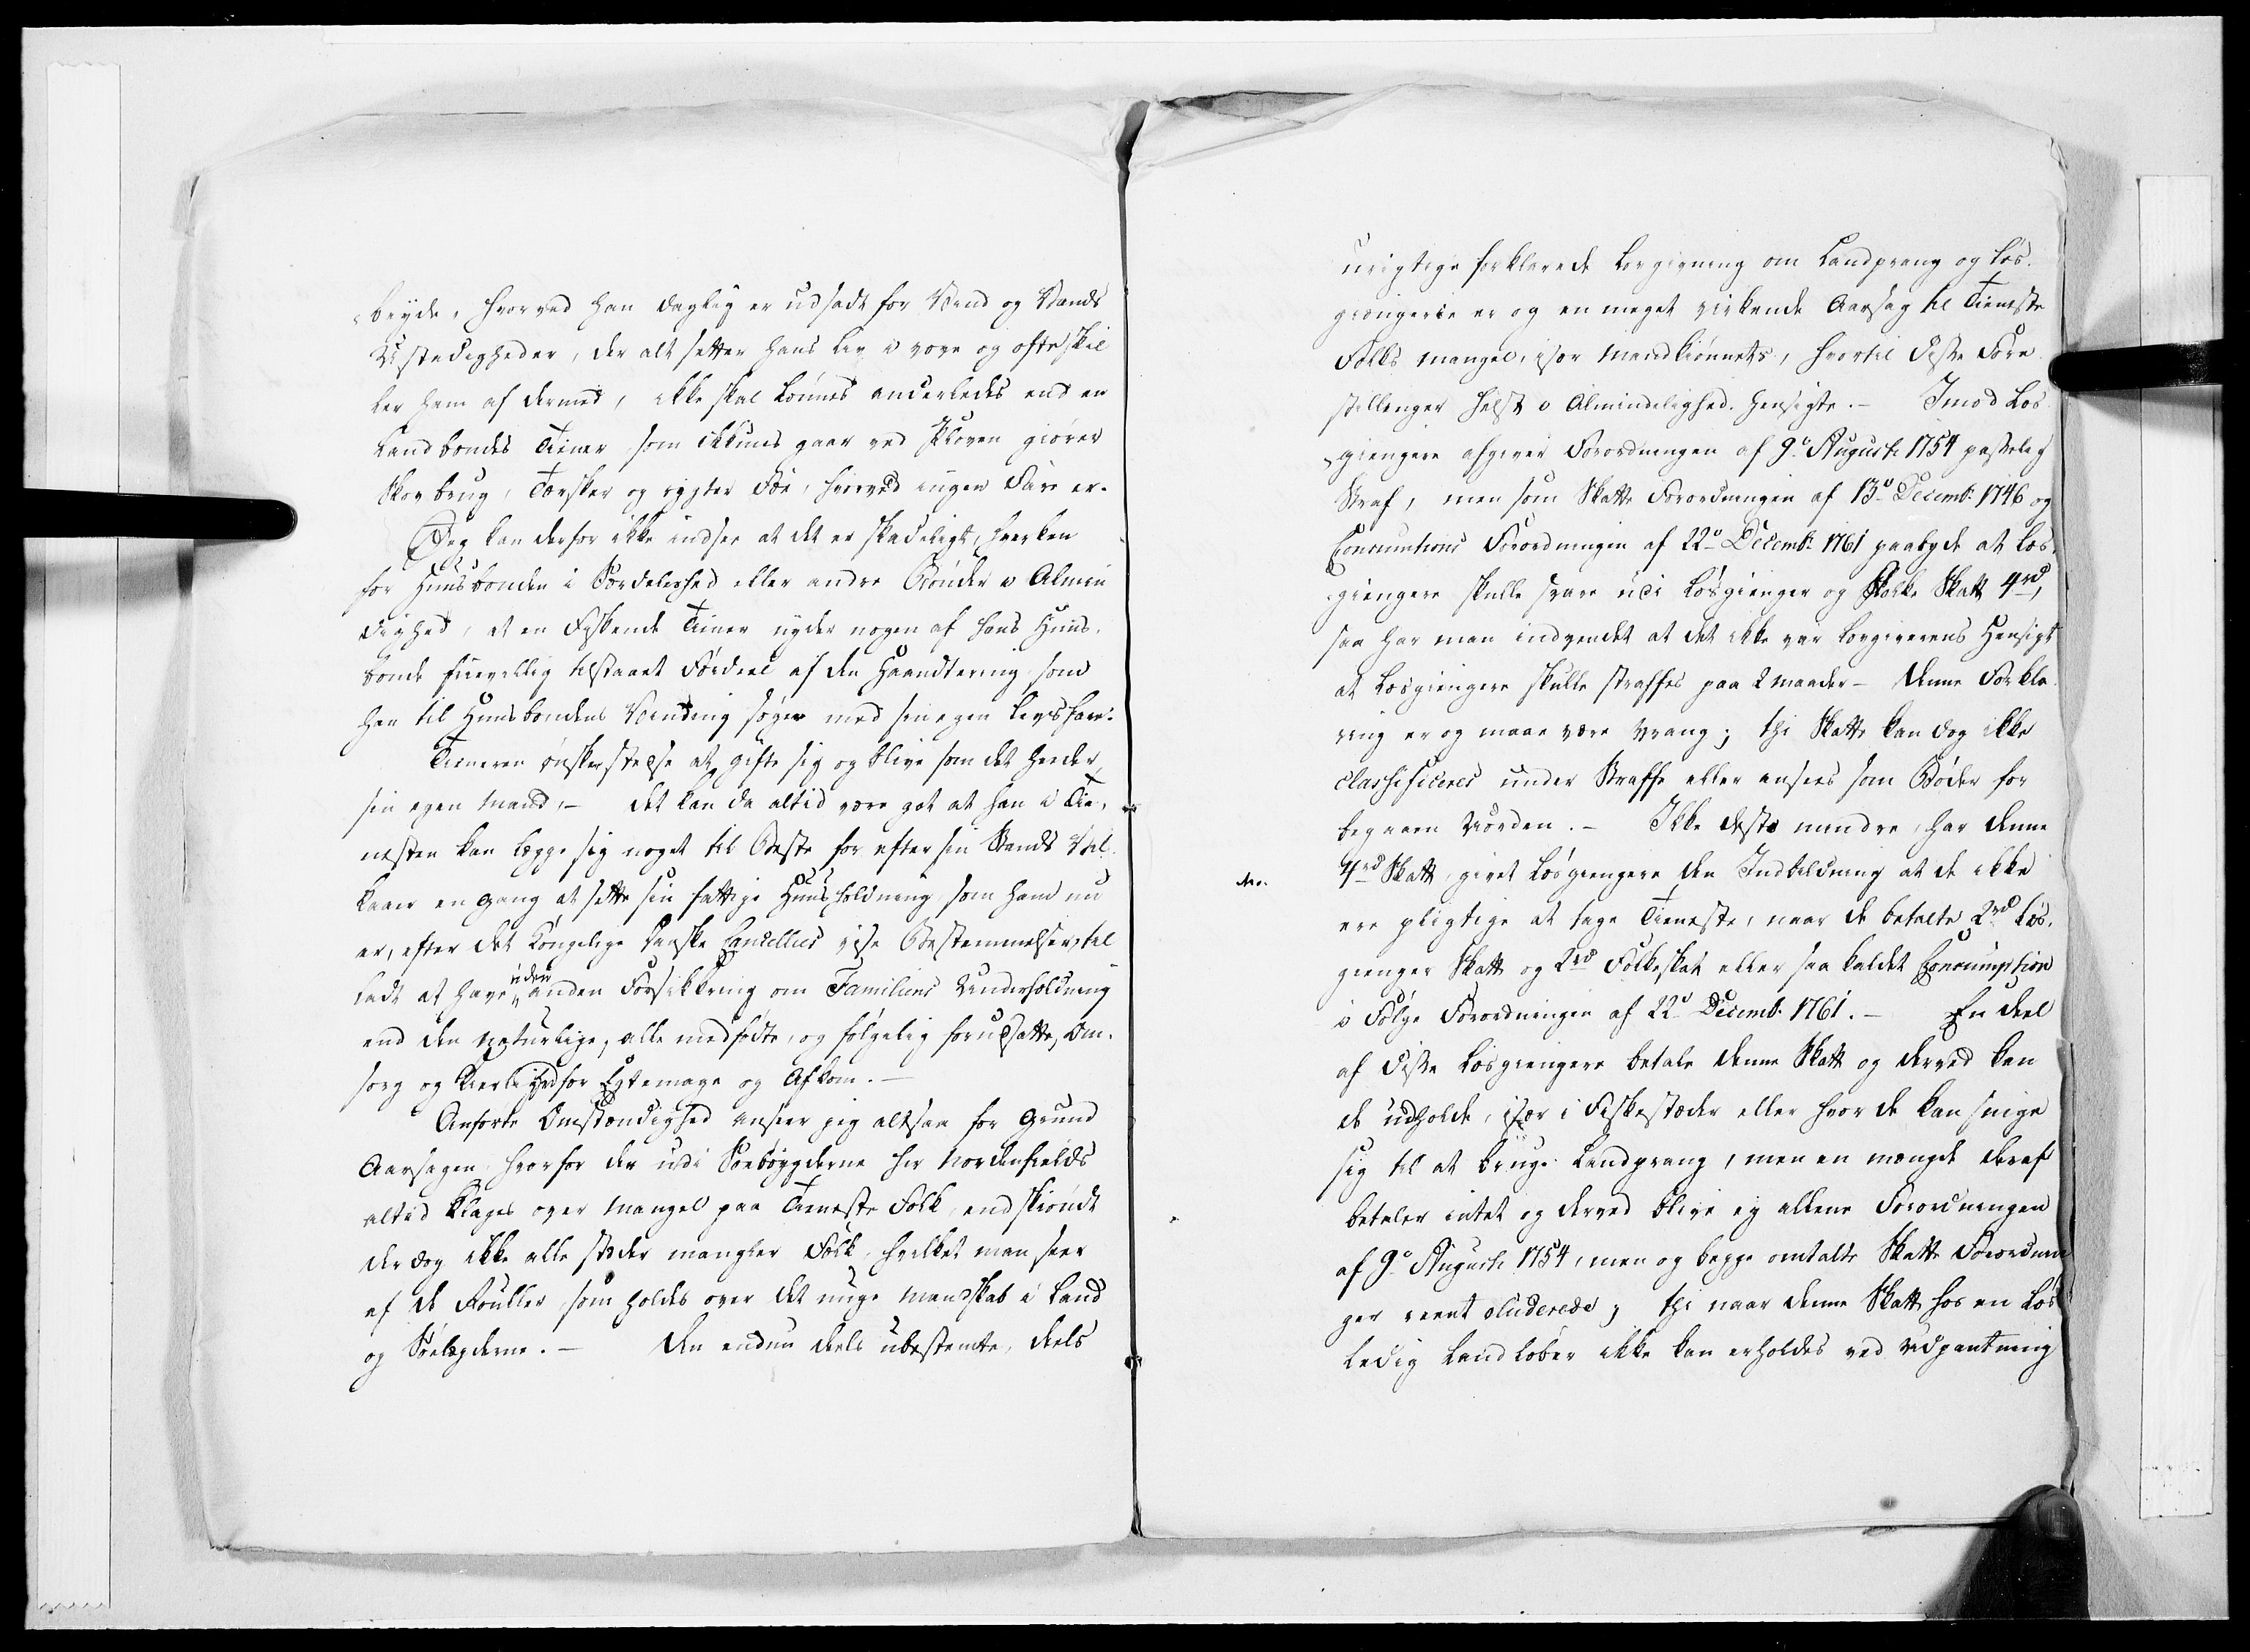 bryde, hvorved han daglig er udsadt for Vind og Vands
Ustadigheder, der alt setter hans Liv i vove og ofte skil
ler ham af dermed, ikke skal lønnes anderledes end en
Landbondes Tiener som ikkuns gaar ved Ploven giører
Skovbrug, Tærsker og rygter Fæe, hvorved ingen Fare er.
Jeg kan derfor ikke indsee at det er skadeligt, hverken
for Huusbonden i Særdeleshed eller andre Bønder i Almin
dighed, at en Fiskende Tiener nyder nogen af hans Huus-
bonde frievillig tilstaaet Fördeel af den Haandtering som
han til Huusbondens Vinding søger med sin egen Livsfare:
Tieneren ønsker at gifte sig og blive som det heder,
sin egen Mand, - det kan da altid være got at han i Tie-
nesten kan legge sig noget til Beste for efter sin Stands Vil-
kaar en gang at sette sin fattige Huusholdning som ham nu
er, efter det Kongelige danske Cancellies vise Bestemmelser, til
ladt at have uden anden Forsikkring om Familiens Underholdning
end den naturlige, alle medfødte, og følgelig forudsatte, Om-
sorg og Kierlighed for Egtemage og Afkom. -
Anførte Omstændighed anseer jeg altsaa for Grund
Aarsagen hvorfor der udi Søebøygderne her Nordenfields
altid klages over Mangel paa Tieneste Folk, endskiøndt
der dog ikke alle stæder mangler Folk, hvilket man seer
af de Rouller som holdes over det unge Mandskab i Land
og Søelegderne. - Den endnu deels ubestemte, deels
urigtige forklarede Lovgivning om Landprang og løs-
giængerie er og en meget virkende Aarsag til Tieneste
Folks Mangel, især Mandkiønnets, hvortil disse Fore
stillinger helst i Almindelighed hensigte. - Imod Løs
giengere afgiver Forordningen af 9de Augusti 1754 passelig
Straf, men som Skatte Forordningen af 13de Decemb: 1746 og
Consumtions Forordningen af 22de Decemb: 1761 paabyde at løs-
giengere skulle svare udi Løsgienger og Folke Skatt 4rd,
saa har man indvendt at det ikke var Lovgiverens Hensigt
at Løsgiengere skulle straffes paa 2 Maader - denne Forkla
ring er og maae være Vrang; thi Skatte kan dog ikke
classificeres under Straffe eller ansees som Bøder for
begaaen Uorden. - Ikke desto mindre, har denne
4rd Skatt, givet Løsgiengere den Indbildning at de ikke
ere pligtige at tage Tieneste, naar de betalte 2rd Løs-
gienger Skatt og 2rd Folkeskat eller saa kaldet Consumption
i Følge Forordningen af 22de Decemb: 1761. - En deel
af disse Løsgiengere betale denne Skatt og derved kan
de udholde, især i Fiskestæder eller hvor de kan snige
sig til at bruge Landprang, men en mængde deraf
betaler intet og derved blive ey allene Forordningen
af 9de Augusti 1754, men og begge omtalte Skatte Forordnin
ger reent eluderede; thi naar denne Skatt hos en Løs
ledig Landløber ikke kan erholdes ved Udpantning